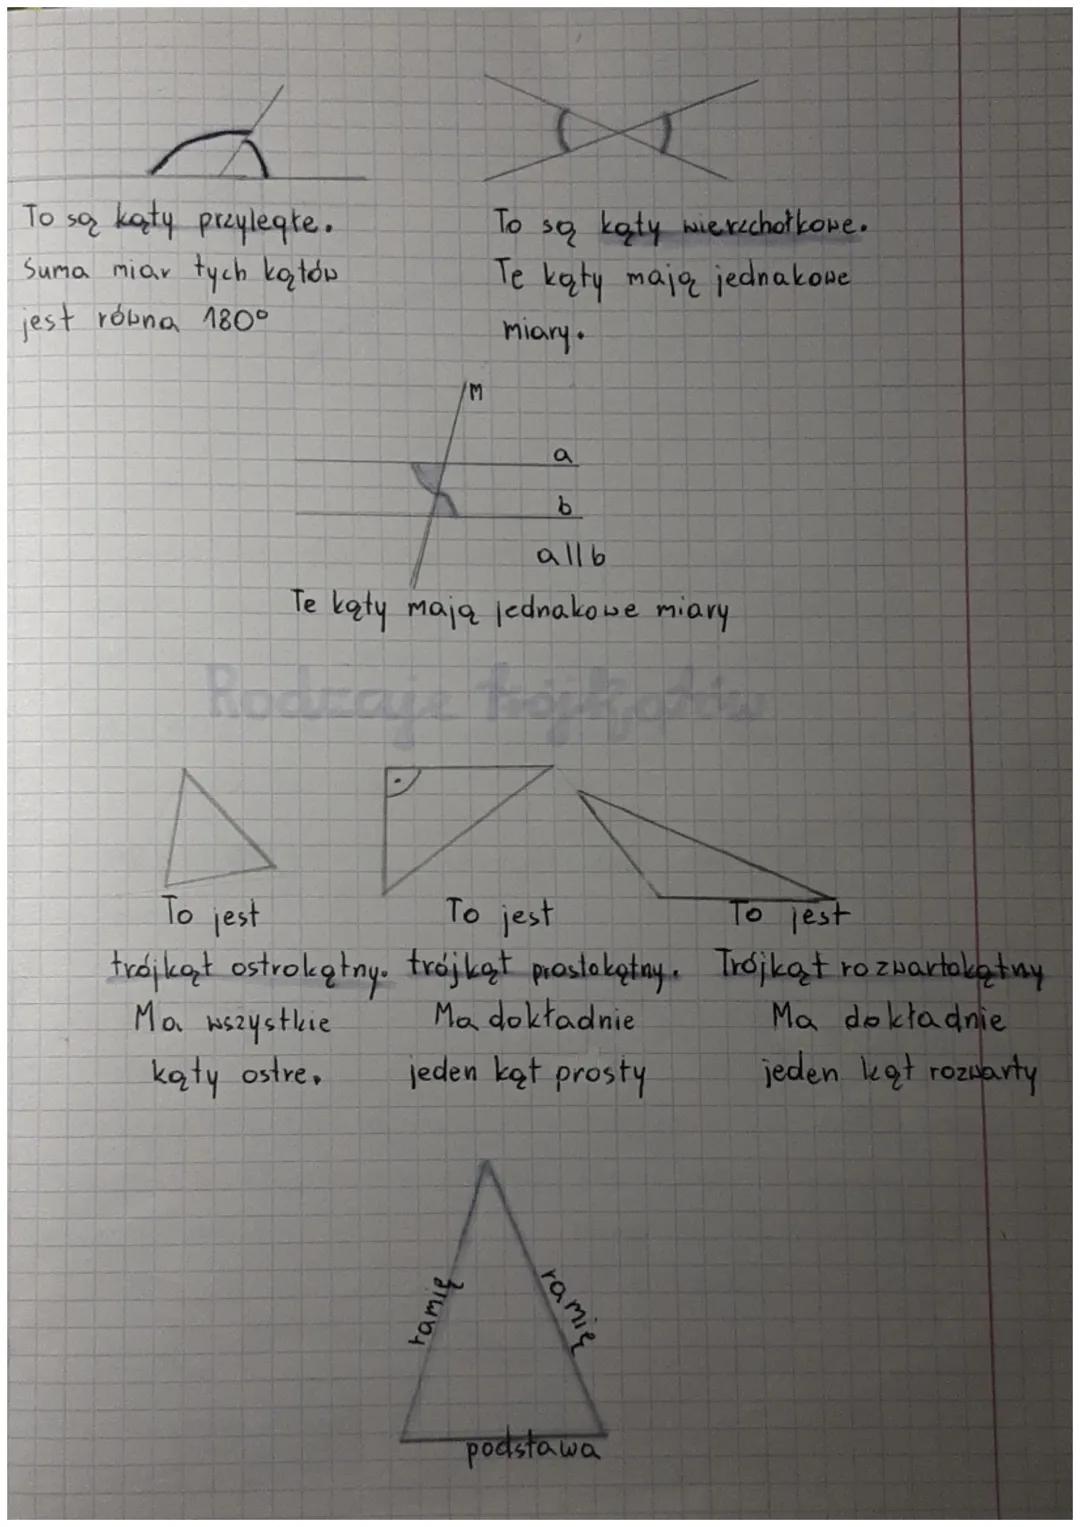 To są kąty przyległe.
Suma miar tych kątów
jest równa 180°
To są kąty wierzchołkowe.
Te kąty mają jednakowe
miary.
m
a
b
a || b
Te kąty mają jednakowe miary
Rodzaje trójkątów
To jest
trójkąt ostrokątny.
Ma wszystkie
kąty ostre.
To jest
trójkąt prostokątny.
Ma dokładnie
jeden kąt prosty
To jest
Trójkąt rozwartokątny
Ma dokładnie
jeden kąt rozwarty
ramię
ramię
podstawa